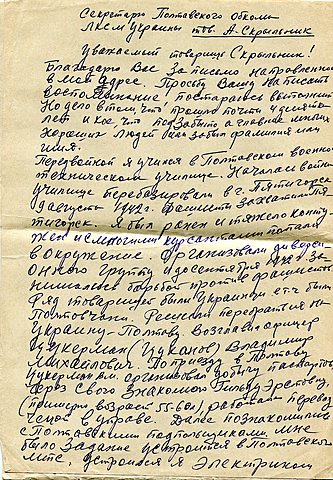 Секретарю Полтавского обкома
ЛКСМ Украины тов. А. Скрыльник
Уважаемый товарищ Скрыльник!
Благодарю Вас за письмо направленное
в мой адрес. Просьбу Вашу написать
воспоминание! постараюсь выполнить.
Но дело в том что прошло почти
лет и кое что позабыто а главное многих
хороших людей забыл фамилия или
имя.
Перед войной я учился в Полтавском военно
техническом училище. Началась война
училище перебазировали в г. Пятигорск
в августе 1942 г. фашисты захватили Пя
тигорск. Я был ранен и тяжело конту
жен и с многими курсантами попали
в окружение. Организовали диверси-
онную группу и до сентября 1942 г. за-
нимались борьбой против фашистов.
Ряд товарищей были украинцы в т.ч. были
Полтовчани. Решили перебратся на
Украину-Полтаву. Возглавил офицер
Цукерман (Цуканов) Владимир
Михайлович. По приезду в Полтаву
Цукерман В.м. организовал добычу паспортов
через своего знакомого
(примерно возраст 55-60 л) работал перевод
чеком в управе. Далее познакомились
с Полтавскими подпольщиками мне
было задание устроится в Полтавской
мтс, устроился я Электриком